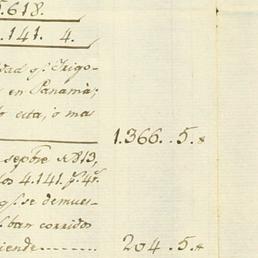 .618.
.141. 4.
dad q.e Trigo-
en Panamà;
cita, o mas
1.366..5.
sepbre 1813,
los 4.141. p.s 4r.
q.e se demues-
ban corridos
iende........ 204.5.